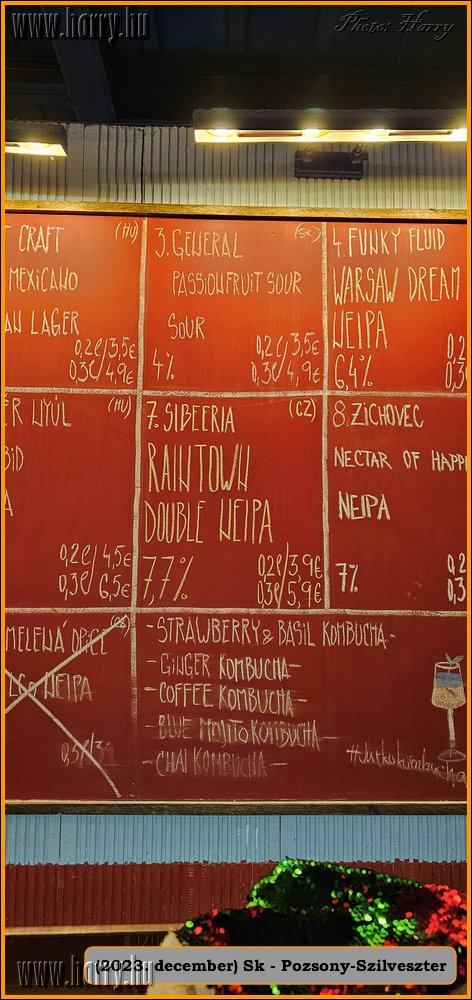 www.harry.hu
Photo: Harry
T CRAFT (HU)
MEXICANO
AN LAGER
0,2ℓ/3,5€
0,3ℓ/4,9€
3. GENERAL (SK)
PASSIONFRUIT SOUR
SOUR
4%
0,2ℓ/3,5€
0,3ℓ/4,9€
4. FUNKY FLUID
WARSAW DREAM
NEIPA
6,4%
0,2
0,3
ÉR NYÚL (HU)
BID
A
0,2ℓ/4,5€
0,3ℓ/6,5€
7. SIBEERIA (CZ)
RAINTOWN
DOUBLE NEIPA
7,7%
0,2ℓ/3,9€
0,3ℓ/5,9€
8. ZICHOVEC
NECTAR OF HAPP
NEIPA
7%
0,2
0,3
MELENÁ OPICE (CZ)
NEIPA
- STRAWBERRY & BASIL KOMBUCHA -
- GINGER KOMBUCHA -
- COFFEE KOMBUCHA -
- BLUE MOJITO KOMBUCHA -
- CHAI KOMBUCHA -
#Jutkokombucha
(2023. december) Sk - Pozsony-Szilveszter
www.harry.hu